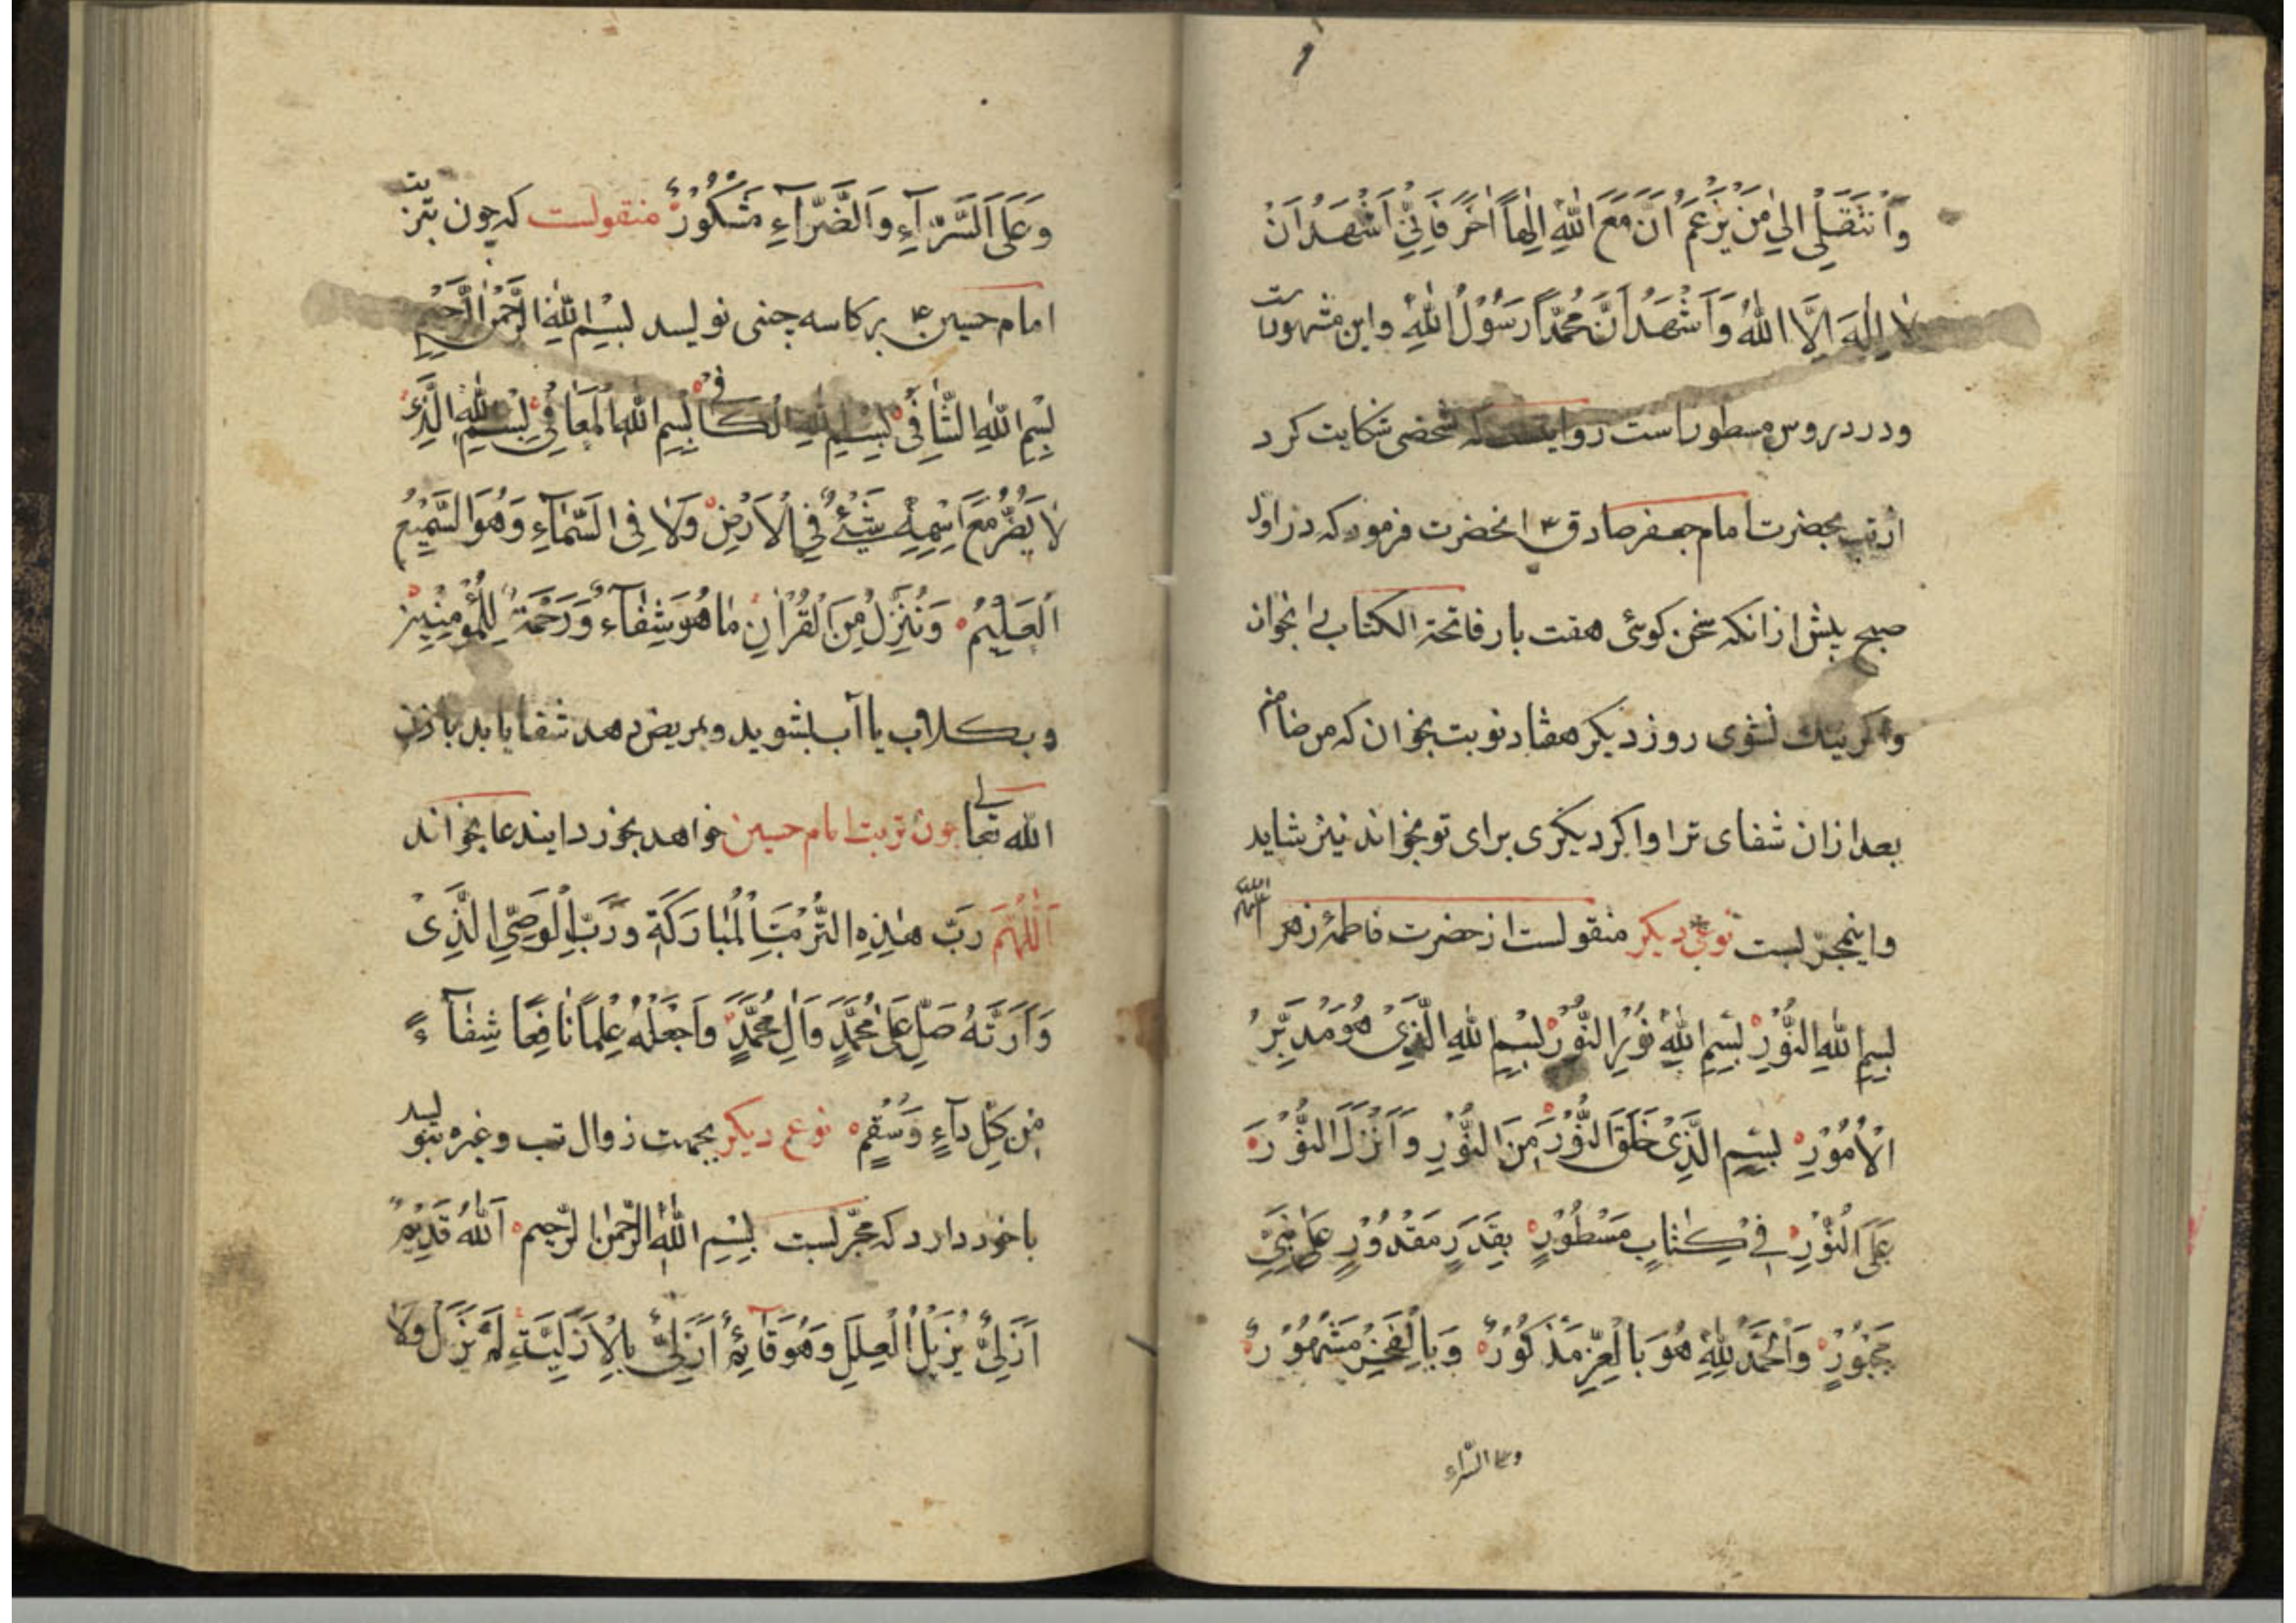 وَاَنْتَقِلِی اِلیٰ مَنْ یَزْعَمُ اَنَّ مَعَ اللّٰهِ اِلٰهاً اٰخَرَ فَاِنّیِ اَشْهَدُ اَنْ
لاٰ اِلٰهَ اِلَّا اللّٰهُ وَاَشْهَدُ اَنَّ مُحَمَّداً رَسُوْلُ اللّٰهِ واین مشهورست
ودر دروس مسطور است روایتست که شخصی شکایت کرد
از تب بحضرت امام جعفر صادق ع انحضرت فرمود که در اول
صبح پیش ازانکه سخن کوئی هفت بار فاتحة الکتاب بخوان
واکر نیک نشوی روز دیکر هفتاد نوبت بخوان که من ضامنم
بعد ازان شفای ترا واکر دیکری برای تو بخواند نیز شاید
واین مجرّبست نوعی دیکر منقولست از حضرت فاطمهٔ زهرا
بِسِمِ اللّٰهِ النُّوْرِ بِسِمِ اللّٰهِ نُوْرِ النُّوْرِ بِسْمِ اللّٰهِ الَّذِیْ هُوَ مُدَبِّرُ
الْاُمُوْرِ بِسِمِ الَّذِیْ خَلَقَ النُّوْرَ مِنَ النُّوْرِ وَاَنْزَلَ النُّوْرَ
عَلَی النُّوْرِ فیِ کِتٰابٍ مَسْطُوْرٍ بِقَدَرٍ مَقْدُوْرٍ عَلیٰ نَبِیٍّ
مَحْبُوْرٍ وَالْحَمْدُ لِلّٰهِ هُوَ بِالْعِزِّ مَذْکُوْرٌ وَبِالْفَخْرِ مَشْهُوْرٌ
وعلی السّرّاء
وَعَلَی السَّرّآءِ وَالضَّرّآءِ مَشْکُوْرٌ منقولست که چون بتربت
امام حسین ع بر کاسه چینی نویسد بِسْمِ اللّٰهِ الرَّحْمٰنِ الرَّحِیْمِ
بِسْمِ اللّٰهِ الشّٰافیْ بِسِمِ اللّٰهِ الکٰافی بِسِمِ اللّٰهِ الْمُعٰافِیْ بِسْمِ اللّٰهِ الَّذِیْ
لٰا یَضُرُّ مَعَ اِسْمِهِ شَیْئٌ فِی الْاَرْضِ وَلٰا فِی السَّمٰآءِ وَهُوَ السَّمِیْعُ
الْعَلِیْمُ وَنُنَزِّلُ مِنَ الْقُرْاٰنِ مٰا هُوَ شِفٰآءٌ وَرَحْمَةٌ لِلْمُؤْمِنِیْنَ
وبکلاب یا آب بشوید وبمریض دهد شفا یابد باذن
اللّٰه تعالی چون تربت امام حسین خواهد بخورد ایندعا بخواند
اَللّٰهُمَّ رَبَّ هٰذِهِ التُّرْبَتِ الْمُبٰارَکَةِ وَرَبَّ الْوَصِیِّ الَّذِیْ
وَاَرَتَهُ صَلِّ عَلیٰ مُحَمَّدٍ وَاٰلِ مُحَمَّدٍ وَاجْعَلْهُ عِلْماً نٰافِعًا شِفٰآءً
مِنْ کِلِّ دآءٍ وَسُقْمٍ نوع دیکر بجهت زوال تب وغیره بنویسد
باخود دارد که مجرّبست بِسْمِ اللّٰهِ الرَّحْمٰنِ الرَّحِیمِ اَللّٰهُ قَدِیْمٌ
اَزَلِیٌّ یُزِیْلُ الْعِلَلَ وَهُوَ قٰآئِمٌ اَزَلِیٌّ بِالْاَزَلِیَّةِ لَمْ یَزَلْ وَلٰا